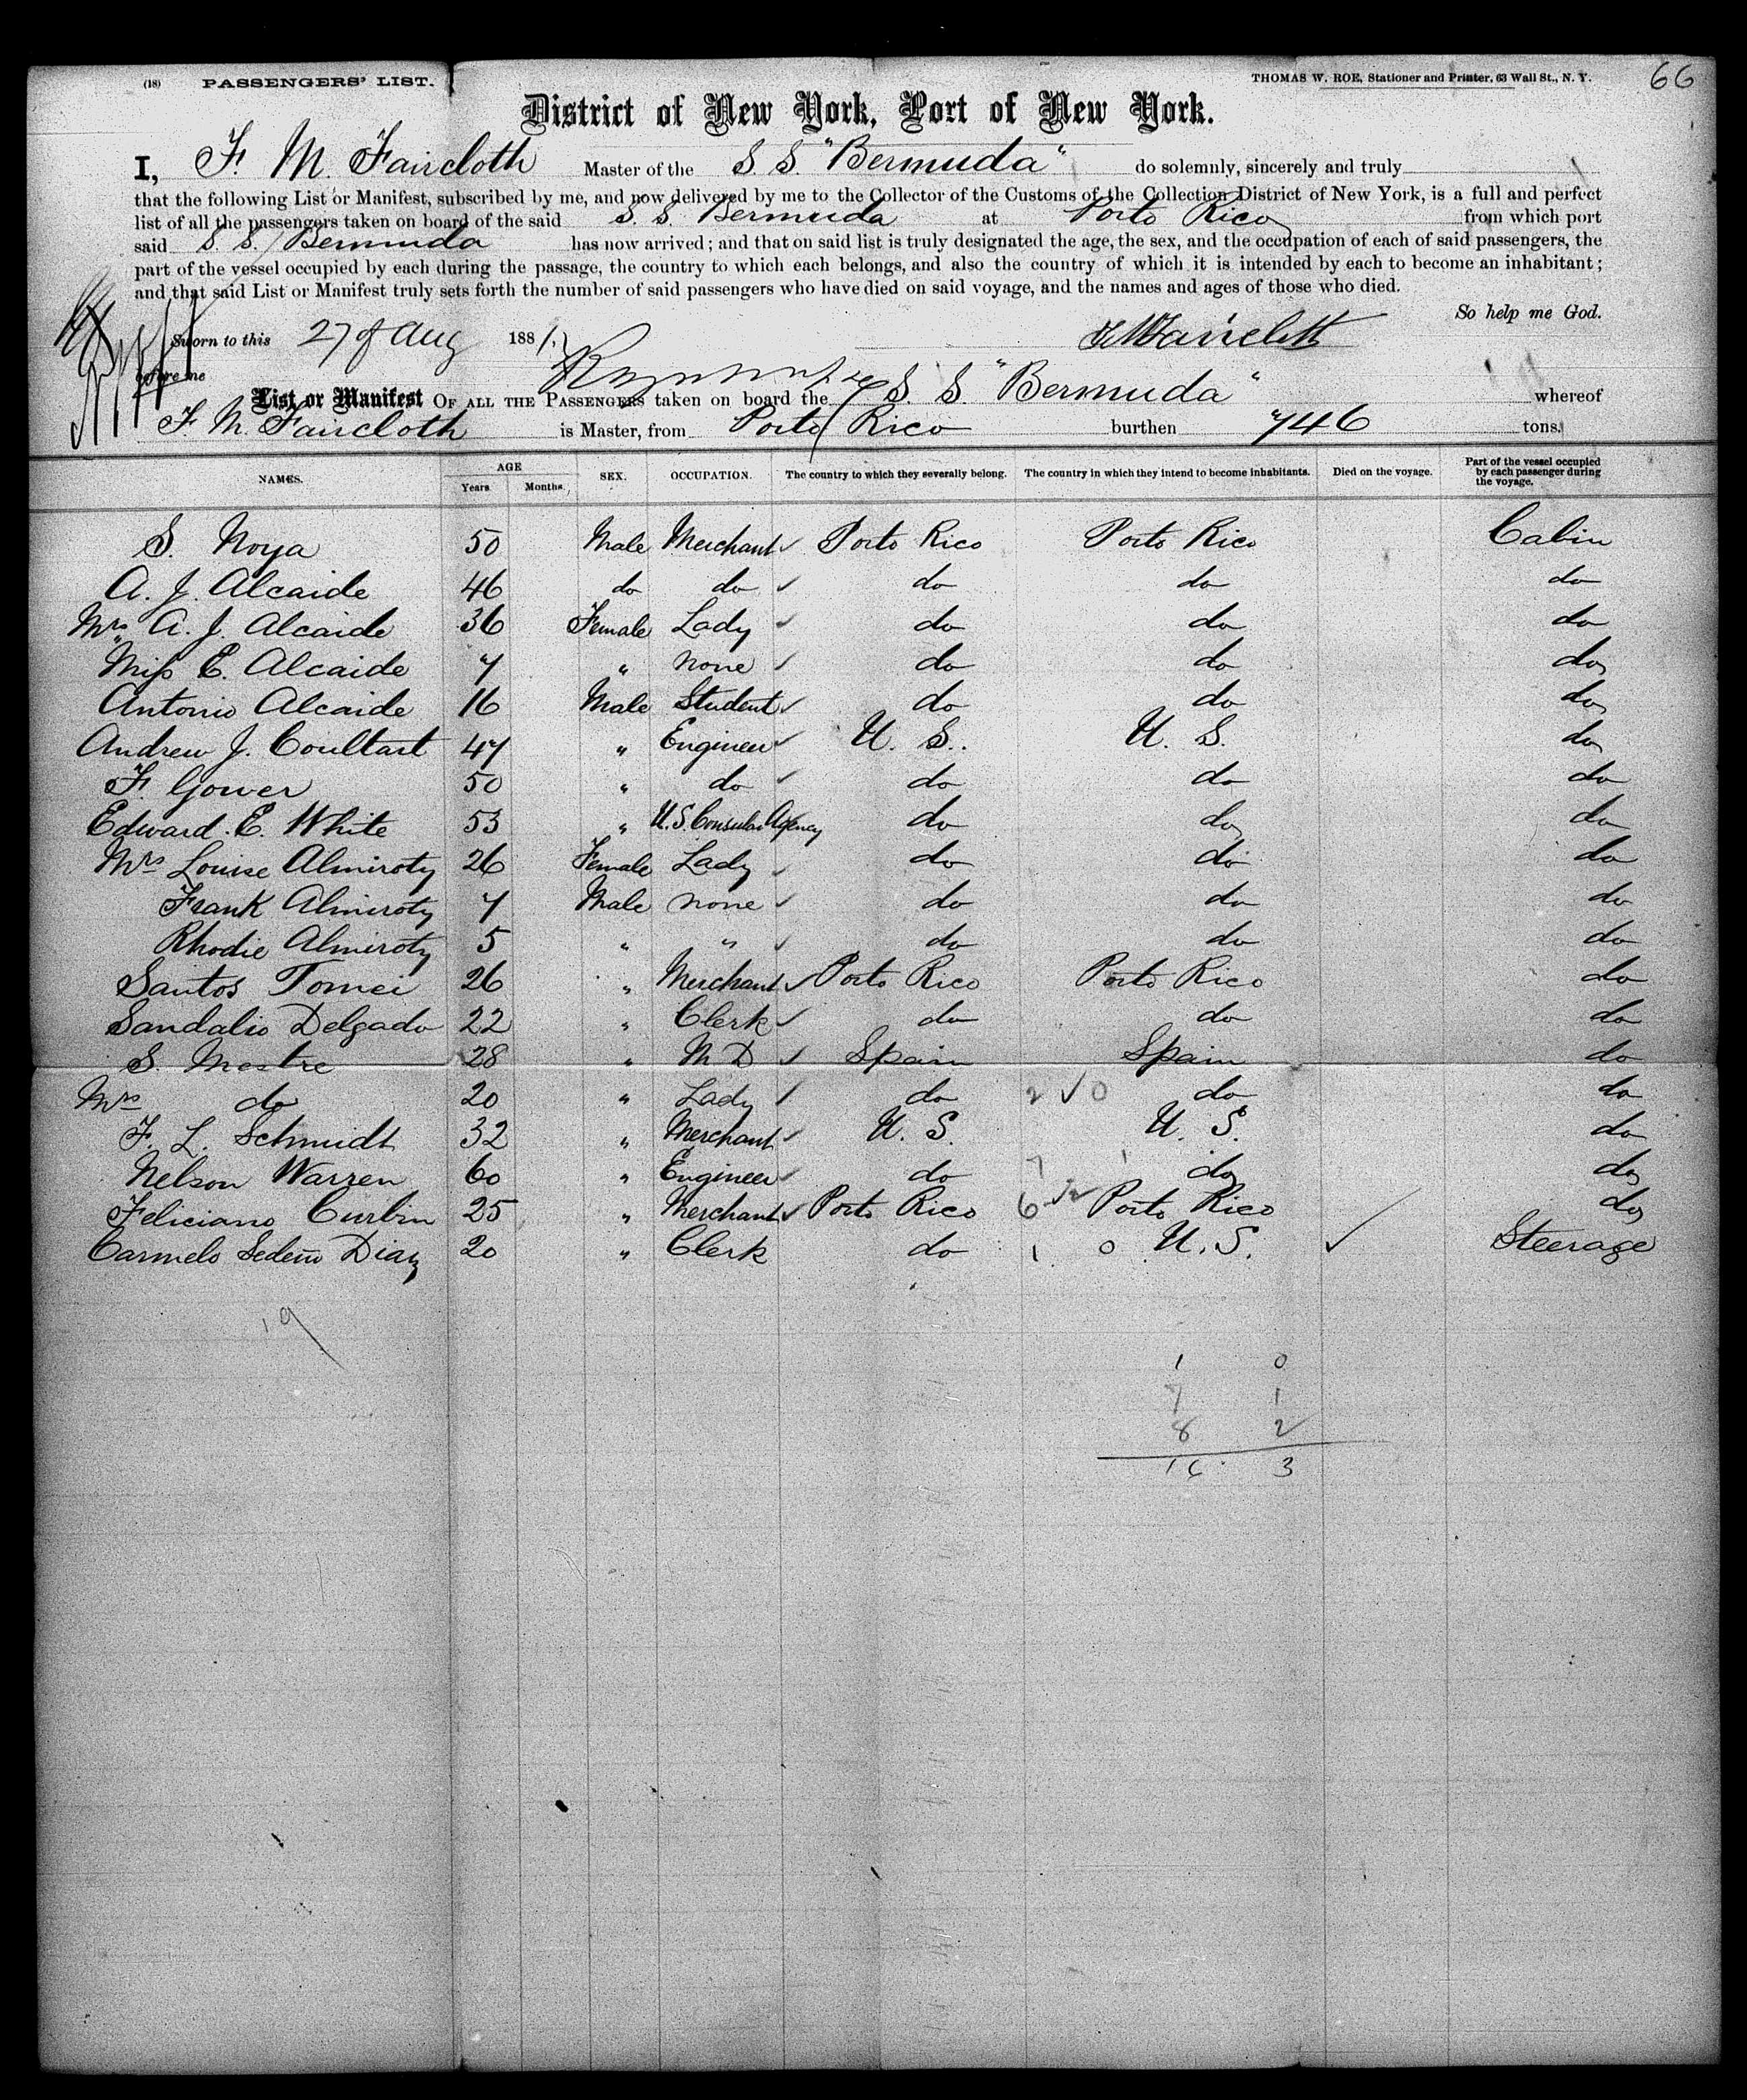 (18) PASSENGERS' LIST. THOMAS W. ROE, Stationer and Printer, 63 Wall St., N. Y. 66
District of New York, Port of New York.
I, F. M. Faircloth Master of the S S. "Bermuda" do solemnly, sincerely and truly
that the following List or Manifest, subscribed by me, and now delivered by me to the Collector of the Customs of the Collection District of New York, is a full and perfect
list of all the passengers taken on board of the said S. S. Bermuda at Porto Rico from which port
said S. S. Bermuda has now arrived; and that on said list is truly designated the age, the sex, and the occupation of each of said passengers, the
part of the vessel occupied by each during the passage, the country to which each belongs, and also the country of which it is intended by each to become an inhabitant;
and that said List or Manifest truly sets forth the number of said passengers who have died on said voyage, and the names and ages of those who died.
So help me God.
Sworn to this 27 of Aug 1881 F M Faircloth
before me
List or Manifest OF ALL THE PASSENGERS taken on board the S. S. "Bermuda" whereof
F. M. Faircloth is Master, from Porto Rico burthen 746 tons.
NAMES. AGE Years Months. SEX. OCCUPATION. The country to which they severally belong. The country in which they intend to become inhabitants. Died on the voyage. Part of the vessel occupied by each passenger during the voyage.
S. Noya 50 Male Merchant ✓ Porto Rico Porto Rico Cabin
A. J. Alcaide 46 do do ✓ do do do
Mrs A. J. Alcaide 36 Female Lady ✓ do do do
Miss E. Alcaide 7 " none ✓ do do do
Antonio Alcaide 16 Male Student ✓ do do do
Andrew J. Coultart 47 " Engineer ✓ U. S. U. S. do
F. Gower 50 " do ✓ do do do
Edward. E. White 53 " U. S. Consular Agency do do do
Mrs Louise Almiroty 26 Female Lady ✓ do do do
Frank Almiroty 7 Male none ✓ do do do
Rhodie Almiroty 5 " " ✓ do do do
Santos Tomei 26 " Merchant ✓ Porto Rico Porto Rico do
Sandalio Delgado 22 " Clerk ✓ do do do
S. Mestre 28 " M D ✓ Spain Spain do
Mrs do 20 " Lady ✓ do 2 ✓ 0 do do
F. L. Schmidt 32 " Merchant ✓ U. S. U. S. do
Nelson Warren 60 " Engineer ✓ do 7 1 do do
Feliciano Curbin 25 " Merchant ✓ Porto Rico 6 ✓ 2 Porto Rico do
Carmelo Sedeño Diaz 20 " Clerk do 1 0 U. S. ✓ Steerage
19
1 0
7 1
8 2
16 3